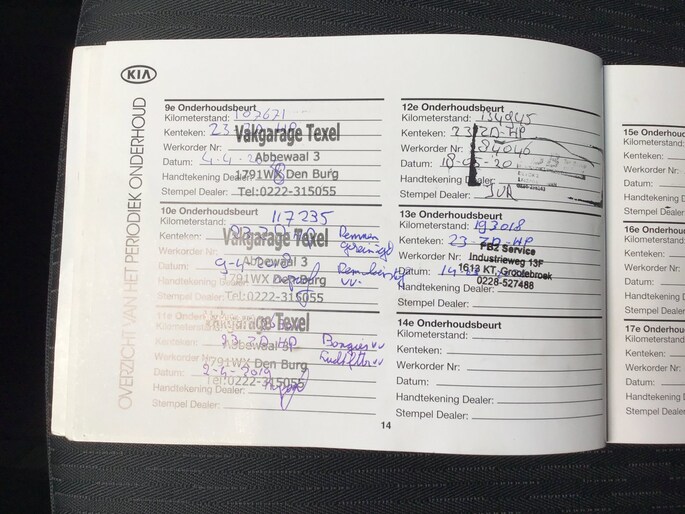 KIA
OVERZICHT VAN HET PERIODIEK ONDERHOUD
9e Onderhoudsbeurt
Kilometerstand: 107671
Kenteken: 23-ZD-HP
Werkorder Nr:
Datum: 4-4-20
Handtekening Dealer:
Stempel Dealer:
Vakgarage Texel
Abbewaal 3
1791WX Den Burg
Tel:0222-315055
10e Onderhoudsbeurt
Kilometerstand: 117235
Kenteken: 23 ZD HP Remmen
Werkorder Nr: gereinigd
Datum: 9-4
Handtekening Dealer: vv.
Stempel Dealer:
Vakgarage Texel
Abbewaal 3
1791WX Den Burg
Tel:0222-315055
11e Onderhoudsbeurt
Kilometerstand:
Kenteken: 23 ZD HP Bougies vv
Werkorder Nr: Luchtfilter vv
Datum: 2-4-2019
Handtekening Dealer:
Stempel Dealer:
Vakgarage Texel
Abbewaal 3
1791WX Den Burg
Tel:0222-315055
12e Onderhoudsbeurt
Kilometerstand: 134945
Kenteken: 23 ZD-HP
Werkorder Nr: 84046
Datum: 18-05-20
Handtekening Dealer:
Stempel Dealer:
13e Onderhoudsbeurt
Kilometerstand: 193018
Kenteken: 23-ZD-HP
Werkorder Nr:
Datum:
Handtekening Dealer:
Stempel Dealer:
PB2 Service
Industrieweg 13F
1613 KT, Grootebroek
0228-527488
14e Onderhoudsbeurt
Kilometerstand:
Kenteken:
Werkorder Nr:
Datum:
Handtekening Dealer:
Stempel Dealer:
14
15e Onderhoudsb
Kilometerstand:
Kenteken:
Werkorder Nr:
Datum:
Handtekening De
Stempel Dealer:
16e Onderhoud
Kilometerstand:
Kenteken:
Werkorder Nr:
Datum:
Handtekening
Stempel Deale
17e Onderhou
Kilometerstan
Kenteken:
Werkorder N
Datum:
Handtekenin
Stempel De